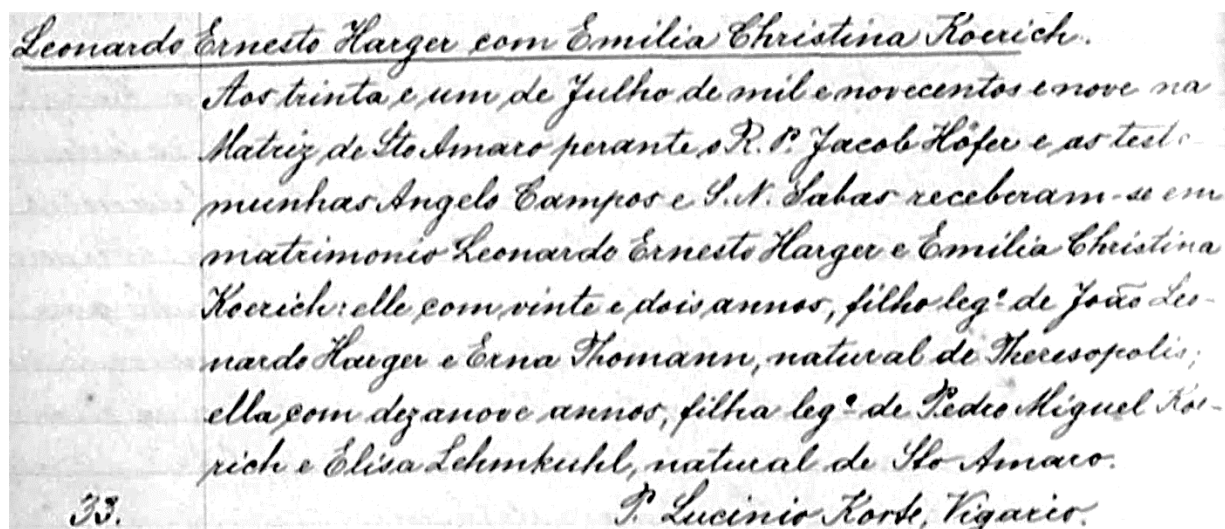 Leonardo Ernesto Harger com Emilia Christina Koerich.
Aos trinta e um de Julho de mil e novecentos e nove na
Matriz de Sto Amaro perante o R. P. Jacob Höfer e as teste
munhas Angelo Campos e S. N. Sabas receberam-se em
matrimonio Leonardo Ernesto Harger e Emilia Christina
Koerich: elle com vinte e dois annos, filho leg.º de João Leo-
nardo Harger e Erna Thomann, natural de Theresopolis;
ella com dezanove annos, filha leg.ª de Pedro Miguel Koe-
rich e Elisa Lehmkuhl, natural de Sto Amaro.
33. P. Lucinio Korte, Vigario.